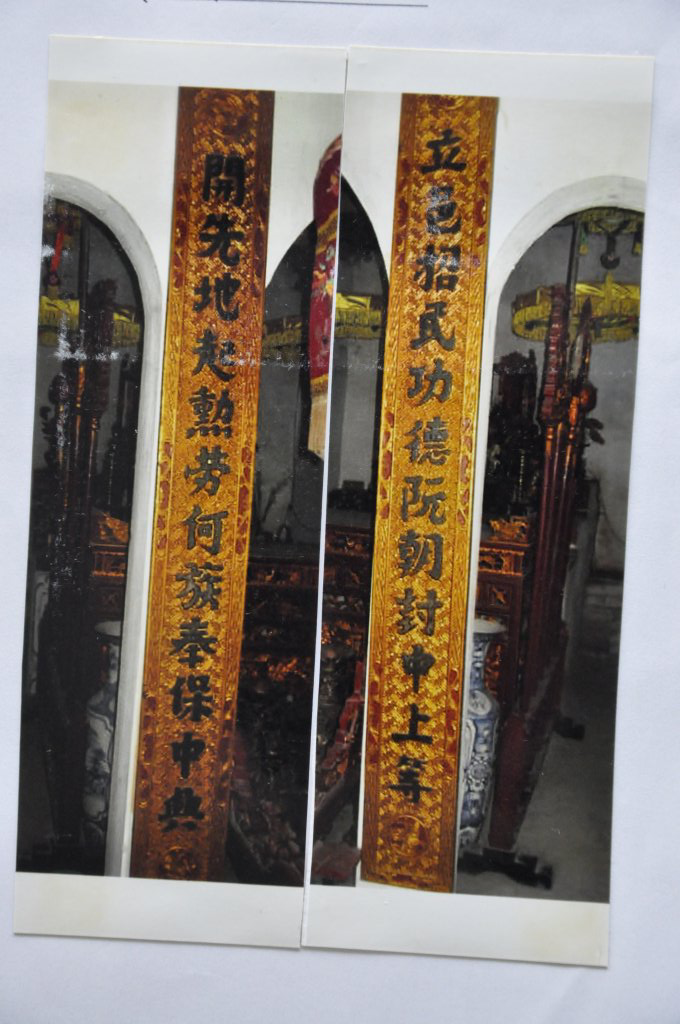 立邑招民功德阮朝封中上等
開先地起勲劳何蔟奉保中典